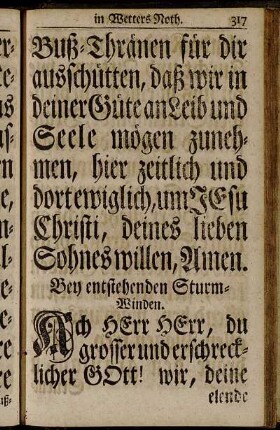 in Wetters Noth. 317
Buß-Thränen für dir
ausschütten, daß wir in
deiner Güte an Leib und
Seele mögen zuneh-
men, hier zeitlich und
dort ewiglich, um JEsu
Christi, deines lieben
Sohnes willen, Amen.
Bey entstehenden Sturm-
Winden.
Ach HErr HErr, du
grosser und erschreck-
licher GOtt! wir, deine
elende